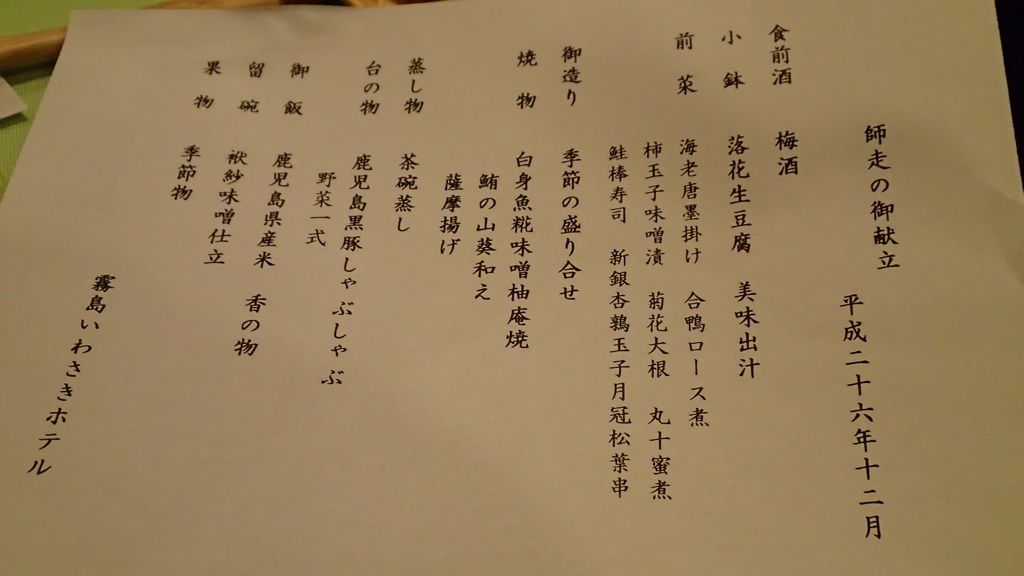 師走の御献立　平成二十六年十二月
食前酒　梅酒
小鉢　落花生豆腐　美味出汁
前菜　海老唐墨掛け　合鴨ロース煮
柿玉子味噌漬　菊花大根　丸十蜜煮
鮭棒寿司　新銀杏鶉玉子月冠松葉串
御造り　季節の盛り合せ
焼物　白身魚糀味噌柚庵焼
鮪の山葵和え
薩摩揚げ
蒸し物　茶碗蒸し
台の物　鹿児島黒豚しゃぶしゃぶ
野菜一式
御飯　鹿児島県産米　香の物
留碗　袱紗味噌仕立
果物　季節物
霧島いわさきホテル